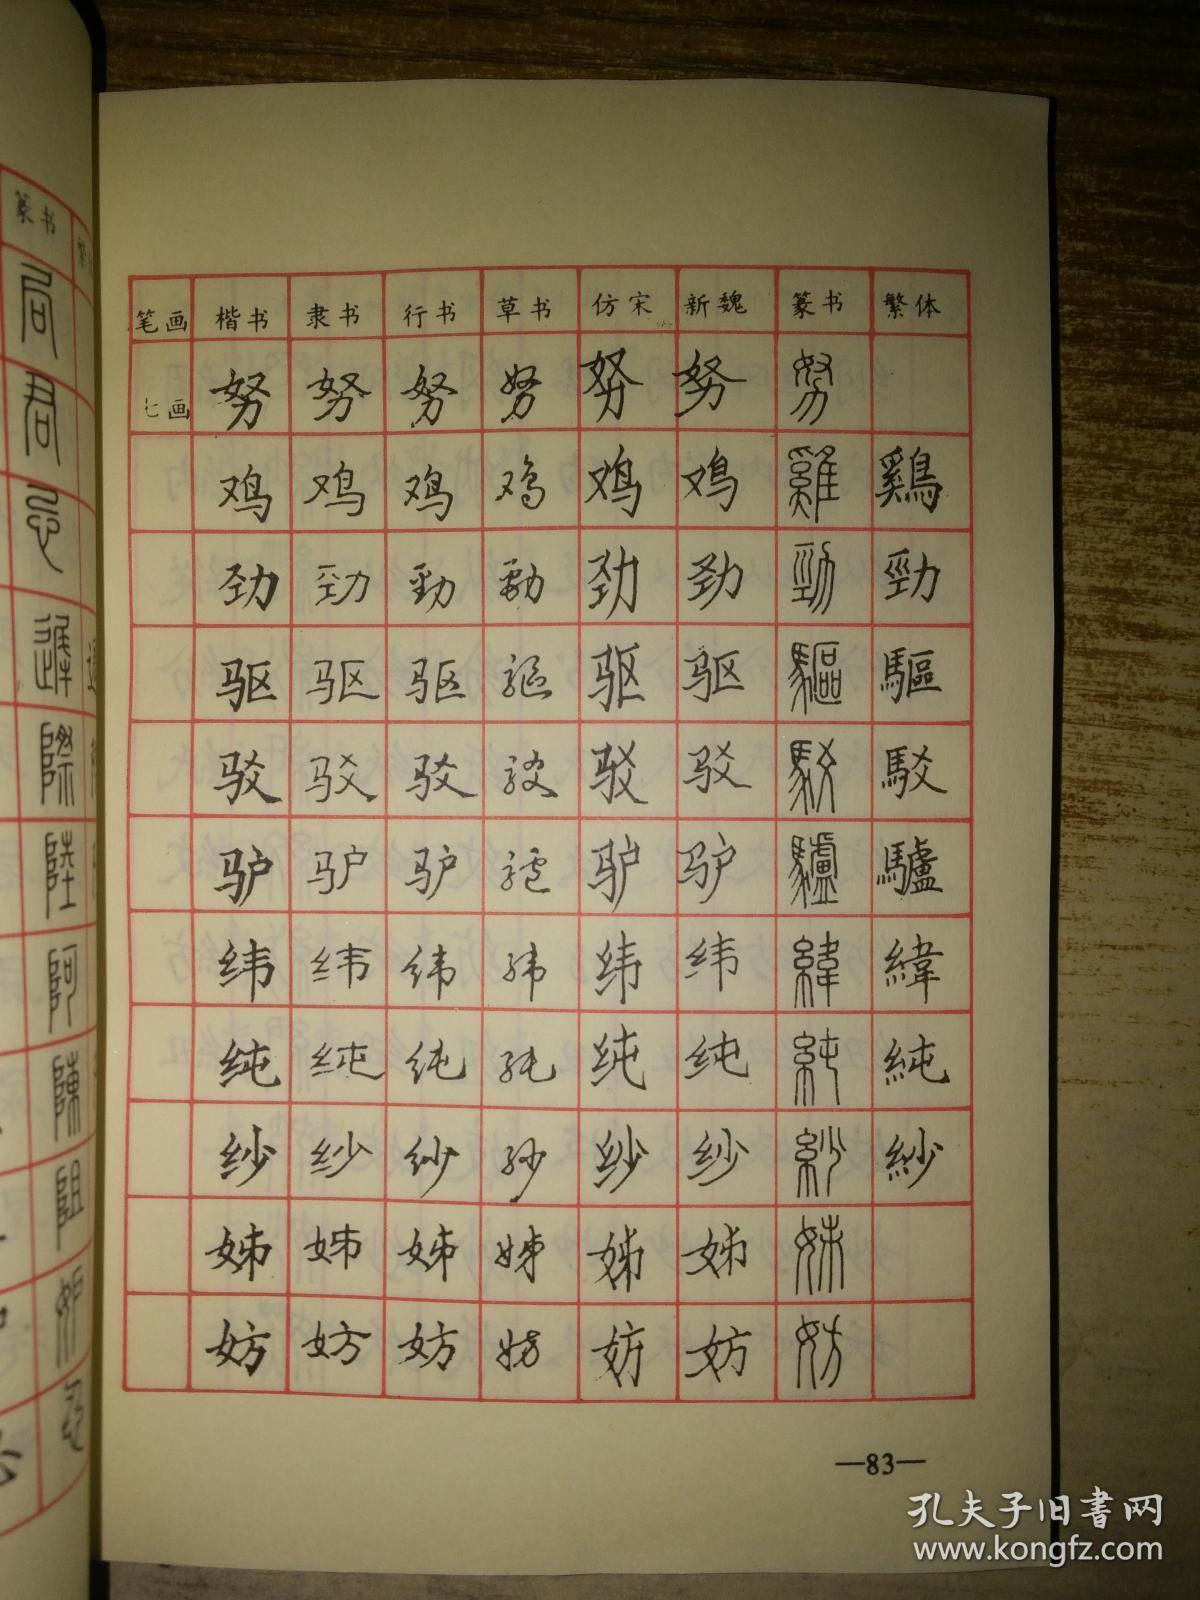 篆书
局
君
忌
遲
際
陸
阿
陳
阻
笔画 楷书 隶书 行书 草书 仿宋 新魏 篆书 繁体
七画 努 努 努 努 努 努 努
鸡 鸡 鸡 鸡 鸡 鸡 雞 鷄
劲 劲 勁 勁 劲 劲 勁 勁
驱 驱 驱 驅 驱 驱 驅 驅
驳 驳 驳 駁 驳 驳 駁 駁
驴 驴 驴 驢 驴 驴 驢 驢
纬 纬 纬 纬 纬 纬 緯 緯
纯 纯 纯 纯 纯 纯 純 純
纱 纱 纱 纱 纱 纱 紗 紗
姊 姊 姊 姊 姊 姊 姊
妨 妨 妨 妨 妨 妨 妨
—83—
孔夫子旧書网
www.kongfz.com